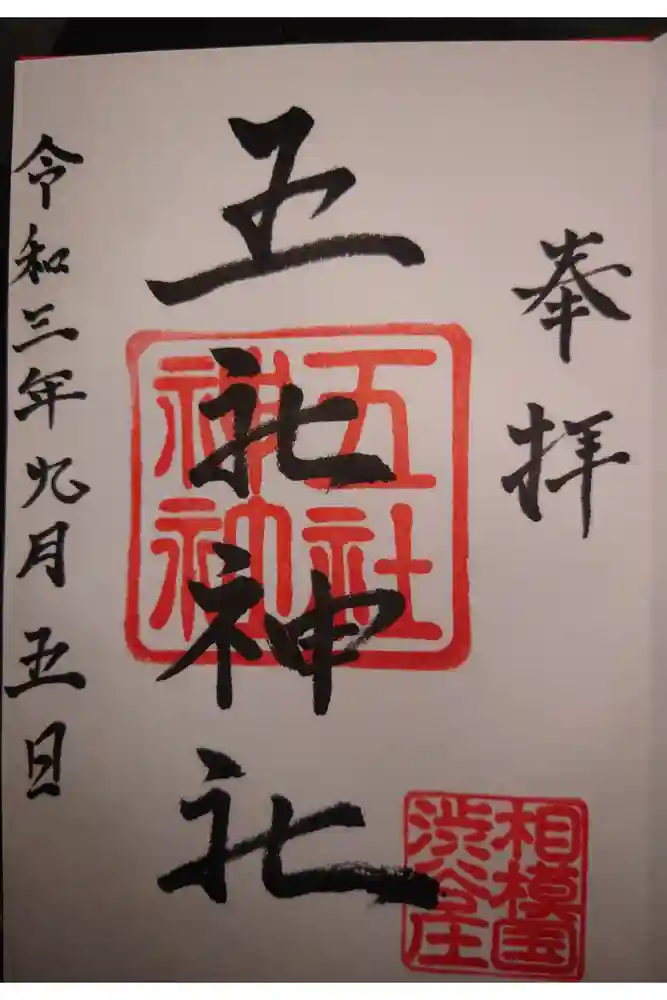 奉拝
五社神社
五社
神神
相模国
渋谷庄
令和三年九月五日